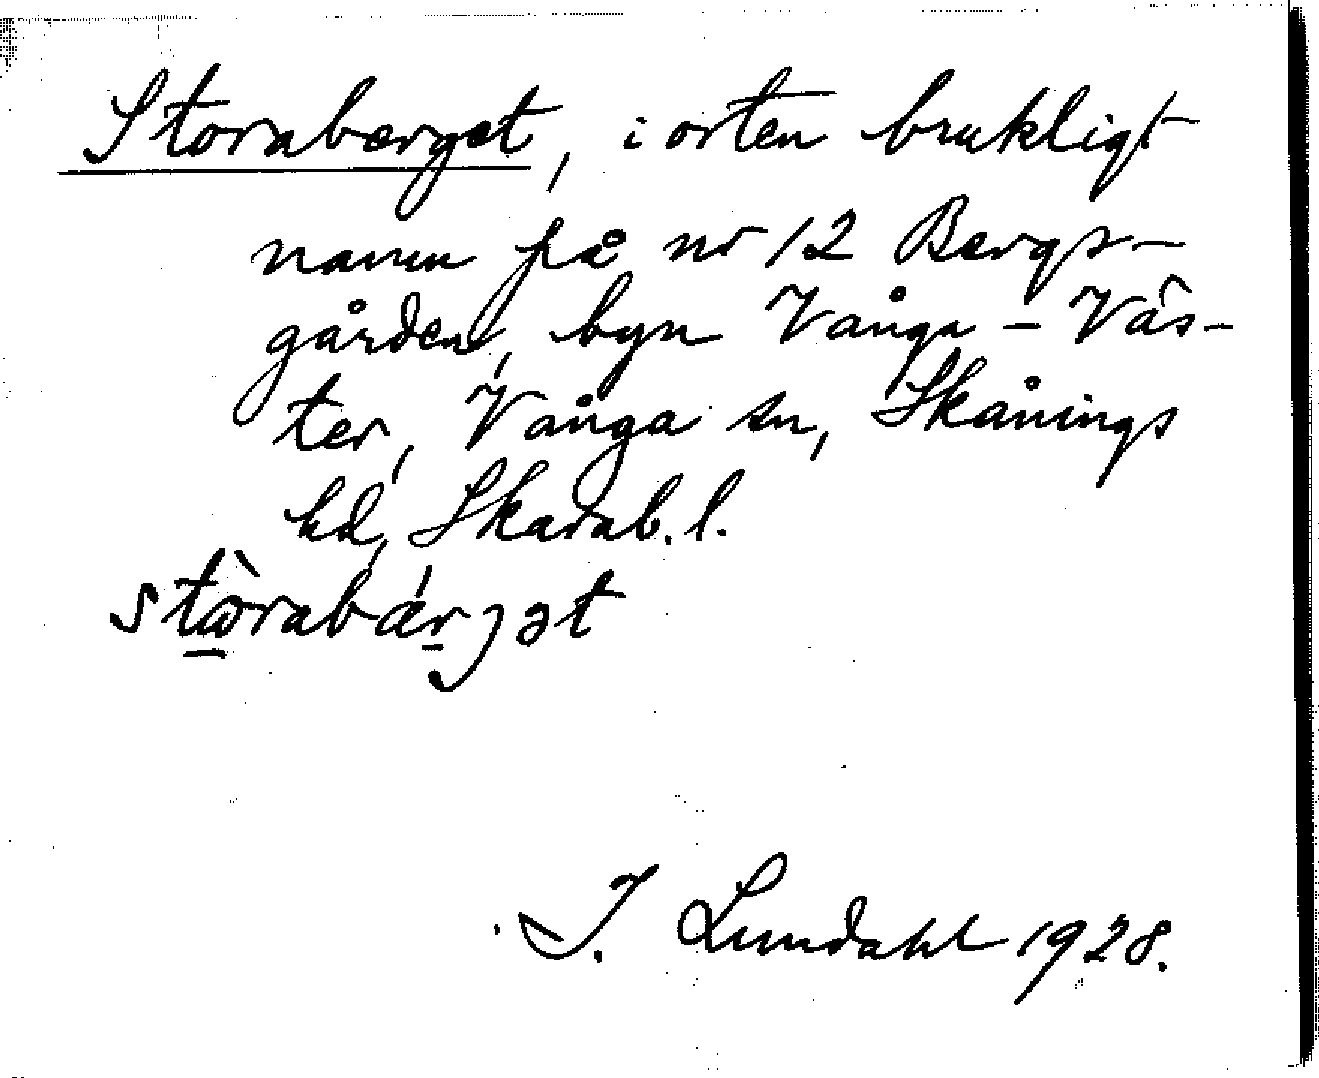 Storaberget, i orten brukligt
namn på nr 12 Bergs-
gården, byn Vånga - Väs-
ter, Vånga sn, Skånings
hd, Skarab. l.
stὼrabǽrjət
I. Lundahl 1928.